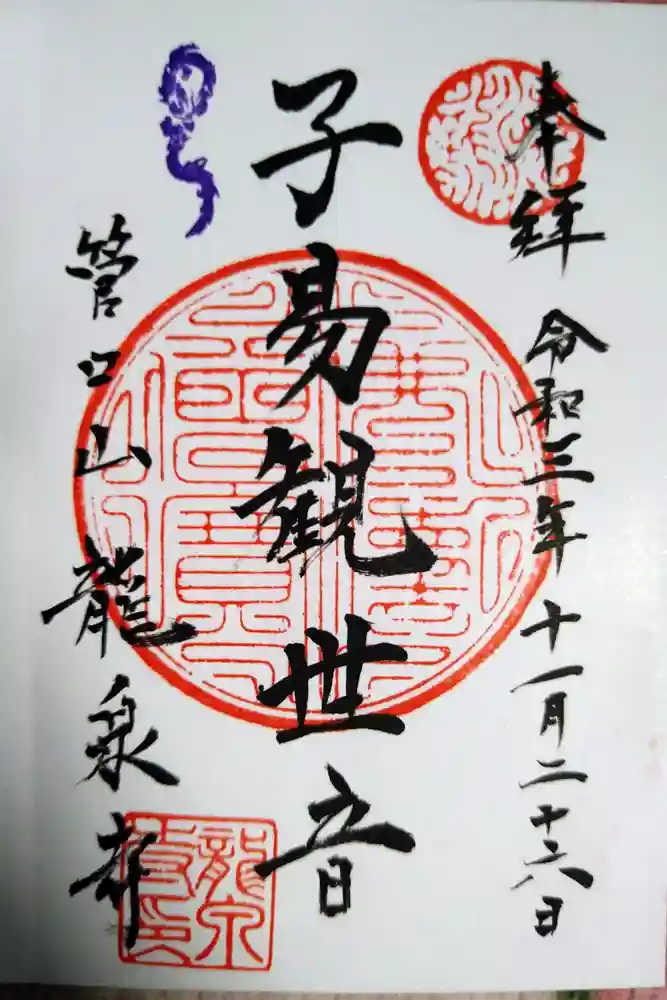 奉拝 令和三年十一月二十六日
子易観世音
菅口山 龍泉寺